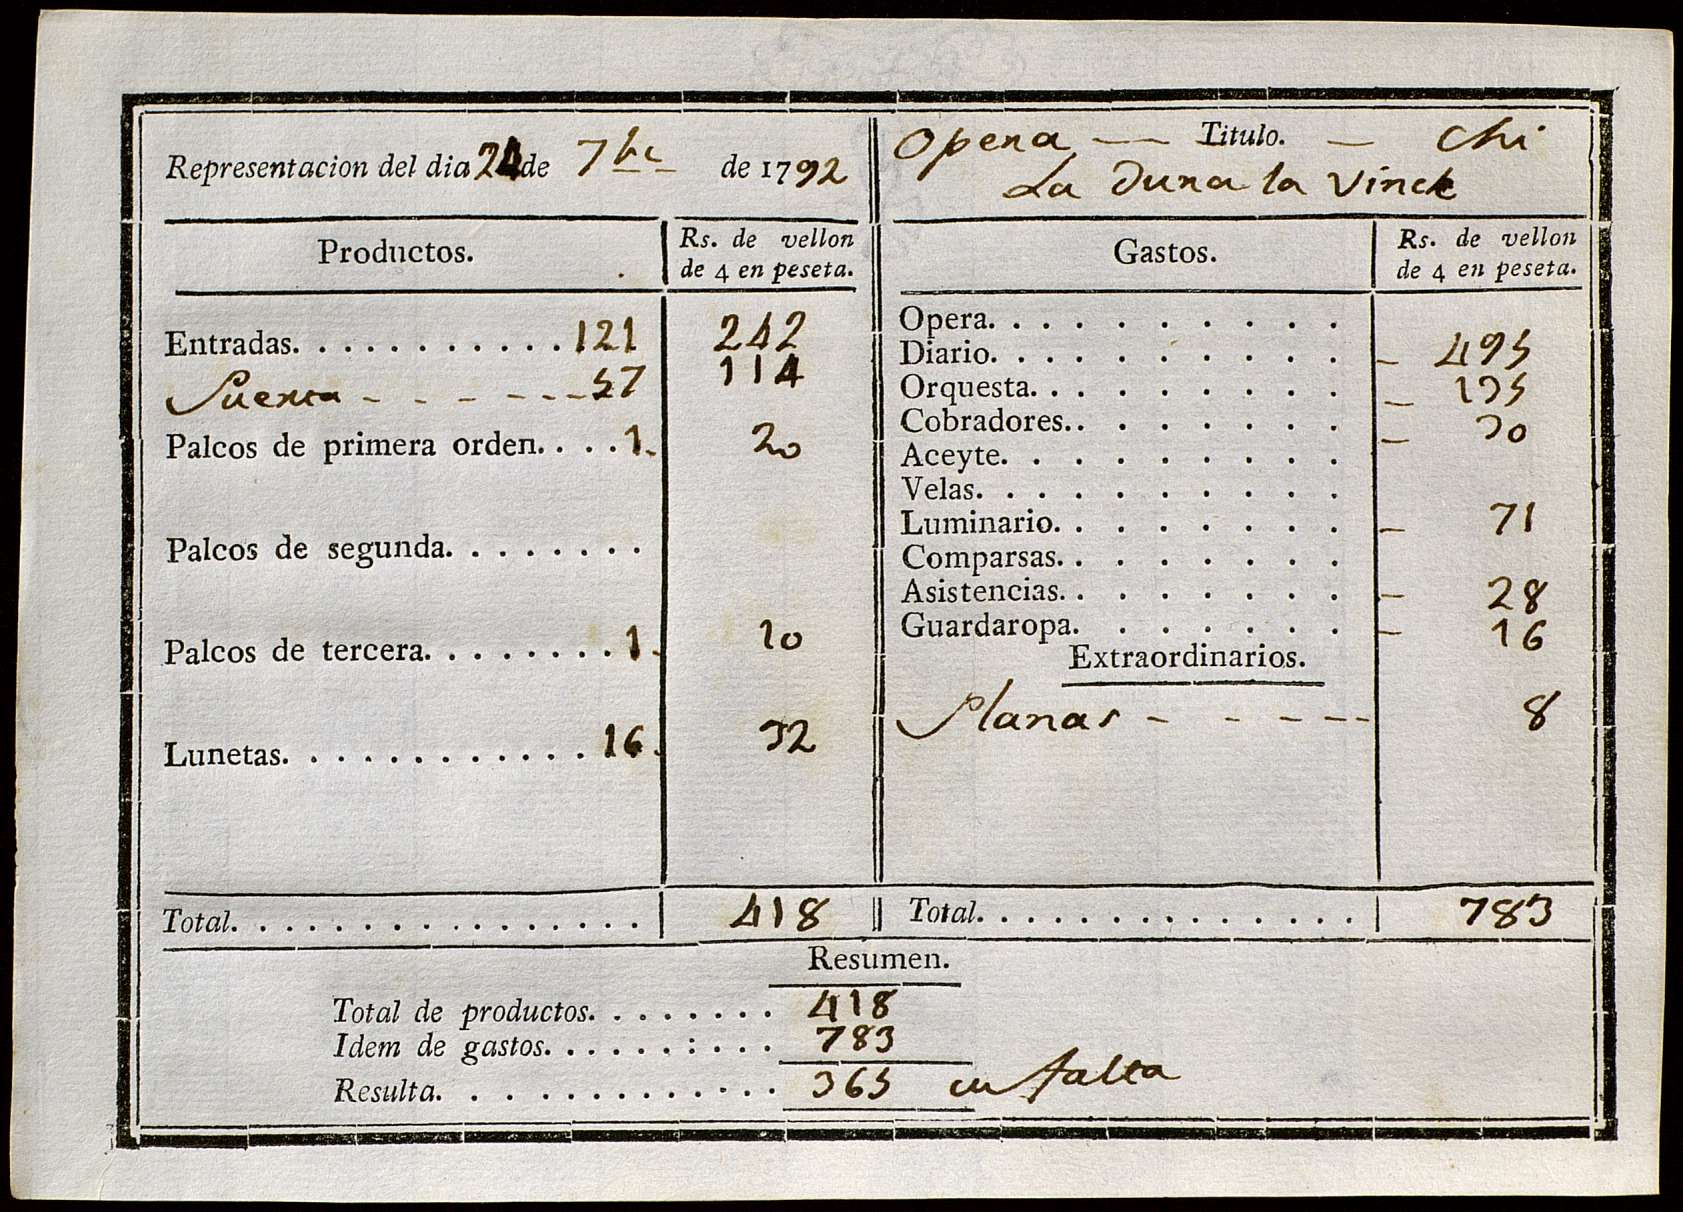 Representacion del dia 24 de 7bre de 1792
Opera — Titulo. — Chi
La Dura la Vince
Productos.
Rs. de vellon
de 4 en peseta.
Entradas. . . . . . . . . . . 121 242
Puerta - - - - - - - 57 114
Palcos de primera orden. . . . 1. 20
Palcos de segunda. . . . . . . .
Palcos de tercera. . . . . . . . 1. 10
Lunetas. . . . . . . . . . . . 16. 32
Total. . . . . . . . . . . . . . . . 418
Gastos.
Rs. de vellon
de 4 en peseta.
Opera. . . . . . . . . .
Diario. . . . . . . . . . - 495
Orquesta. . . . . . . . . - 135
Cobradores. . . . . . . . - 30
Aceyte. . . . . . . . .
Velas. . . . . . . . . .
Luminario. . . . . . . . - 71
Comparsas. . . . . . . .
Asistencias. . . . . . . . - 28
Guardaropa. . . . . . . - 16
Extraordinarios.
Planas - - - - - 8
Total. . . . . . . . . . . . . . . 783
Resumen.
Total de productos. . . . . . . . 418
Idem de gastos. . . . . . : . . . 783
Resulta. . . . . . . . . . . . . 365 en falta